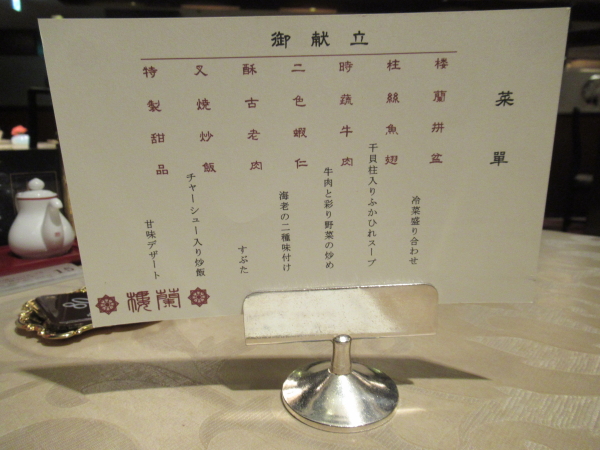 御献立
菜單
楼蘭拼盆
冷菜盛り合わせ
柱絲魚翅
干貝柱入りふかひれスープ
時蔬牛肉
牛肉と彩り野菜の炒め
二色蝦仁
海老の二種味付け
酥古老肉
すぶた
叉焼炒飯
チャーシュー入り炒飯
特製甜品
甘味デザート
樓蘭